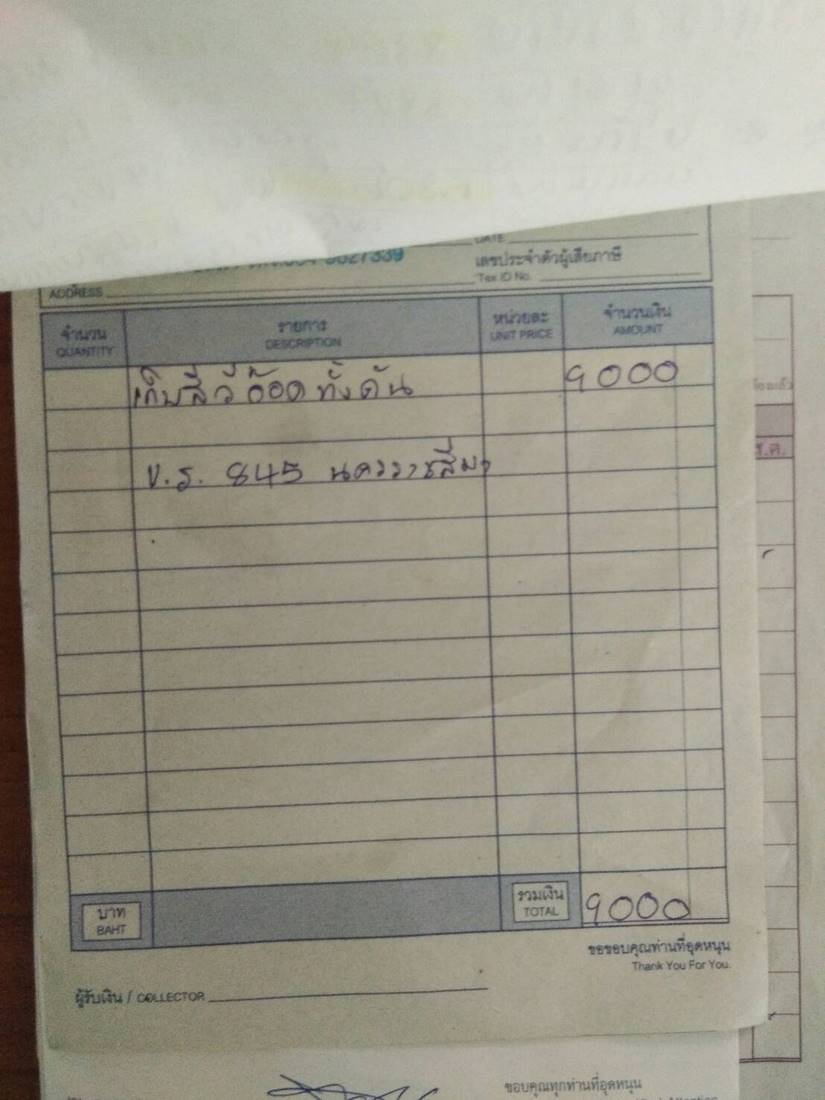 DATE
เลขประจำตัวผู้เสียภาษี
Tax ID No.
ADDRESS
จำนวน รายการ หน่วยละ จำนวนเงิน
QUANTITY DESCRIPTION UNIT PRICE AMOUNT
เก็บสีวีออดทั้งคัน 9000
บ.ร. 845 นครราชสีมา
บาท รวมเงิน
BAHT TOTAL 9000
ขอขอบคุณท่านที่อุดหนุน
Thank You For You.
ผู้รับเงิน / COLLECTOR
ขอบคุณทุกท่านที่อุดหนุน